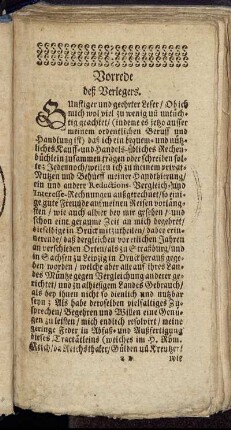 Vorrede
deß Verlegers.
Gunstiger und geehrter Leser / Ob ich
mich wol viel zu wenig uñ untüch-
tig geachtet / (indeme es jetzo ausser
meinem ordentlichen Beruff und
Handlung ist) daß ich ein bequem- und nütz-
liches Kauff- und Handels- Rechen-
büchlein zusammen tragen oder schreiben sol-
te; Jedennoch / weilen ich zu meinem privat
Nutzen und Behuff meiner Handthierung /
ein und andere Reductions- Vergleich- und
Interesse-Rechnungen außgerechnet / so eini-
ge gute Freunde auf meinen Reisen vorläng-
sten / wie auch allhier bey mir gesehen / und
schon eine geraume Zeit an mich begehret /
dieselbige in Druck mitzutheilen / dabey erin-
nerende / daß dergleichen vor etlichen Jahren
an verschieden Orten / als zu Straßburg / und
in Sachsen zu Leipzig in Druck herauß gege-
ben worden / welche aber als auf ihres Lan-
des Müntze gegen Vergleichung anderer ge-
richtet / und zu alhiesigem Landes Gebrauch /
als bey ihnen nicht so dienlich und nutzbar
seyn; Als habe deroselben vielfältiges Zu-
sprechen / Begehren und Willen eine Genü-
gen zu leisten / mich endlich resolvirt / meine
geringe Feder in Abfaß- und Außfertigung
dieses Tractätleins (welches im H. Röm.
Reich / da Reichsthaler / Gülden uñ Kreutzer /
wie